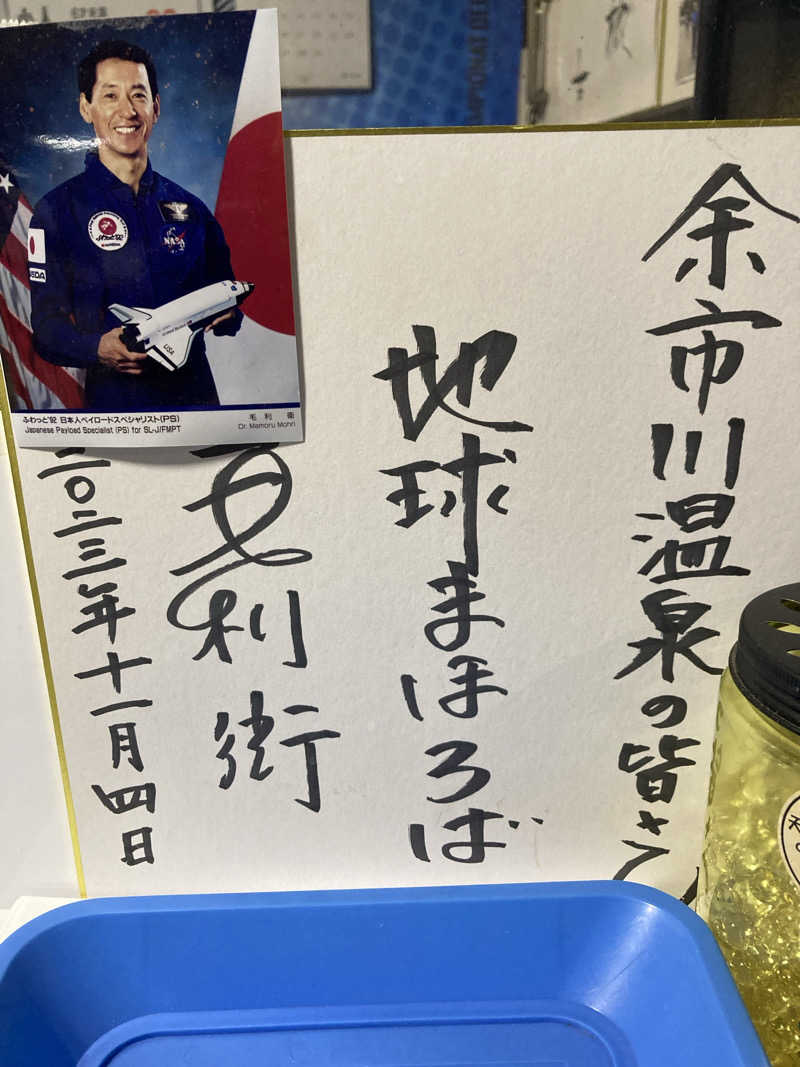 余市川温泉の皆さん
地球まほろば
毛利衛
二〇二三年十一月四日
NASA
USA
ふわっと'92 日本人ペイロードスペシャリスト(PS)
Japanese Payload Specialist (PS) for SL-J/FMPT
毛利 衛
Dr. Mamoru Mohri